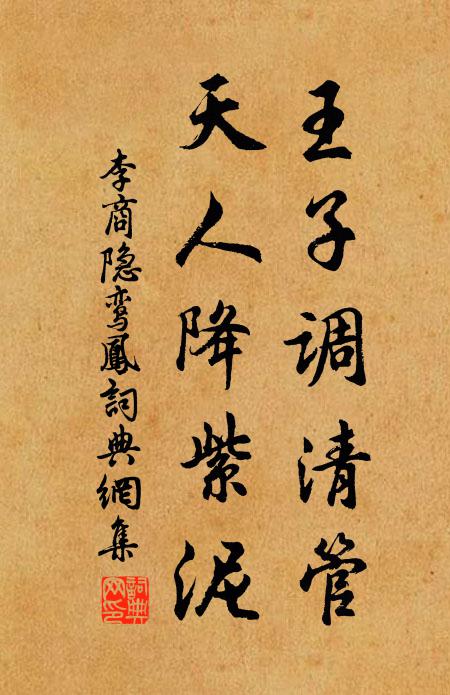 王子调清管
天人降紫泥
李商隐鸾鳳詞典網集
詞典網印